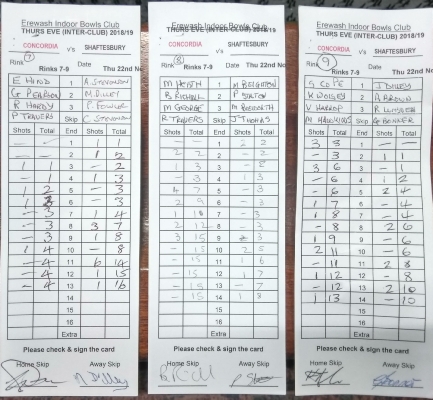 Erewash Indoor Bowls Club
THURS EVE (INTER-CLUB) 2018/19
CONCORDIA v's SHAFTESBURY
Rink 7 Rinks 7-9 Date Thu 22nd Nov
E HIND 1 A STEVENSON
G PEARSON 2 M DILLEY
R HARDY 3 P. FOWLER
P TRAVERS Skip C STEVENSON
Shots Total End Shots Total
1 1 1
2 1 2
- - 3 1 3
- 1 4 - 3
1 2 5 - 3
1 3 6 - 3
- 3 7 1 4
- 3 8 3 7
- 3 9 1 8
1 4 10 - 8
- 4 11 6 14
- 4 12 1 15
- 4 13 1 16
14
15
16
Extra
Please check & sign the card
Home Skip Away Skip
Erewash Indoor Bowls Club
THURS EVE (INTER-CLUB) 2018/19
CONCORDIA v's SHAFTESBURY
Rink 8 Rinks 7-9 Date Thu 22nd No
M HEATH 1 M BEIGHTON
B RICHALL 2
M GEORGE 3
R TRAVERS Skip J THOMAS
Shots Total End Shots Total
- - 1 2 2
2 2 2 - 2
1 3 3 - 
- 3 4 1 3
4 7 5 - 3
2 9 6 - 3
1 10 7 - 3
2 12 8 - 3
3 15 9 - 3
- 15 10 2 5
- 15 11 1 6
- 15 12 1 7
- 15 13 - 7
- 15 14 1 8
15
16
Extra
Please check & sign the card
Home Skip Away Skip
Erewash Indoor Bowls Club
THURS EVE (INTER-CLUB) 2018/19
CONCORDIA v's SHAFTESBURY
Rink 9 Rinks 7-9 Date Thu 22nd No
S COPE 1 J DILLEY
K WOLSEY 2 A BROWN
V HARROP 3
M HAWKINS Skip G BONNER
Shots Total End Shots Total
3 3 1 - -
- 3 2 1 1
3 6 3 - 1
- 6 4 1 2
- 6 5 2 4
1 7 6 - 4
1 8 7 - 4
- 8 8 2 6
1 9 9 - 6
2 11 10 - 6
- 11 11 2 8
1 12 12 - 8
- 12 13 2 10
1 13 14 - 10
15
16
Extra
Please check & sign the card
Home Skip Away Skip